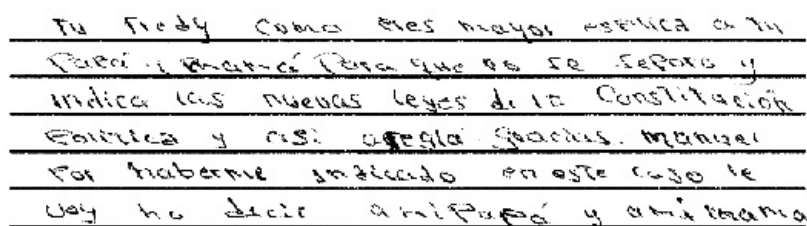 Tu Fredy como eres mayor esplica a tu
Papá y mamá Para que no se separo y
indica las nuevas leyes de la Constitución
Política y asi aregla gracias. manuel
Por haberme indicado en este caso le
voy ho decir a mi Papá y a mi mama